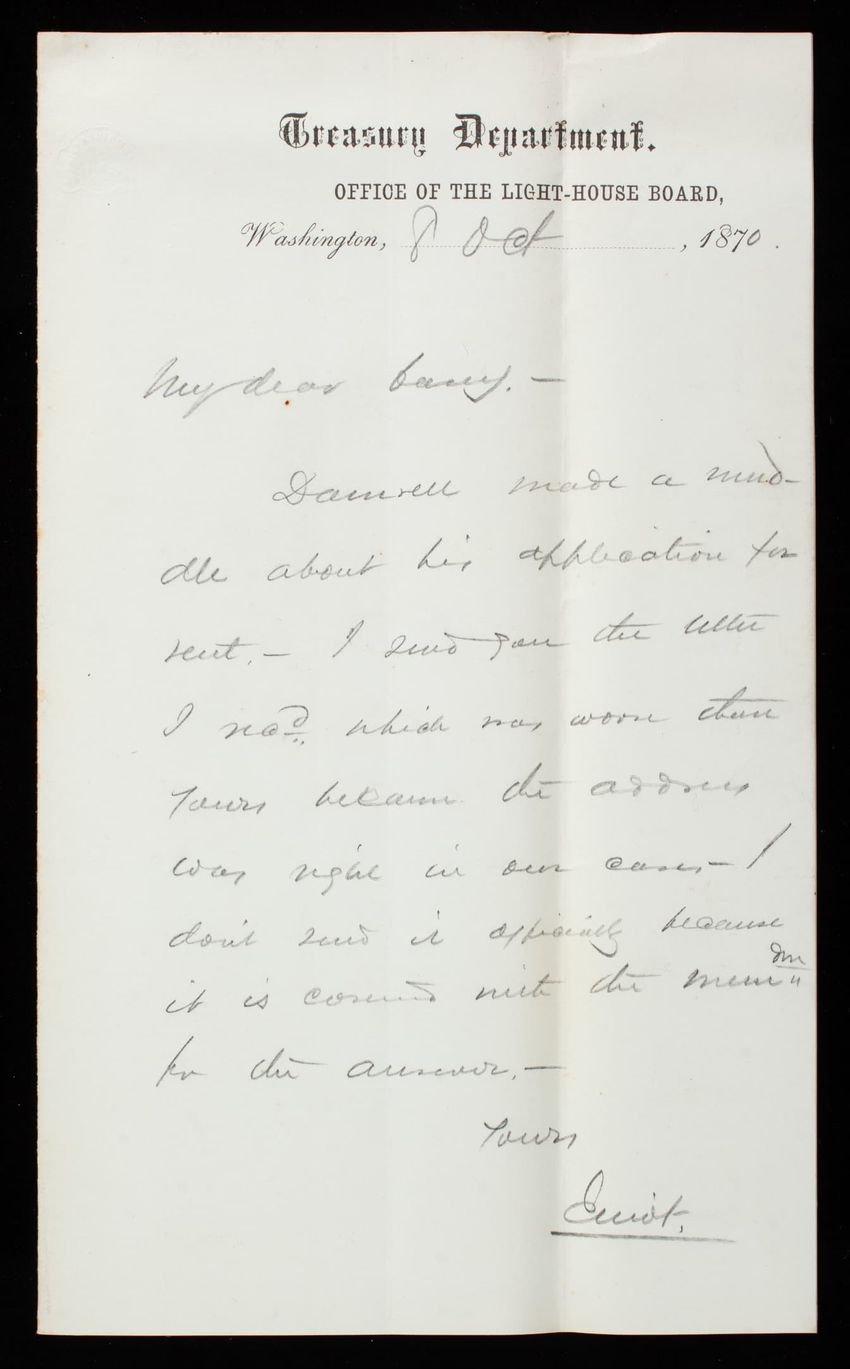 Treasury Department.
OFFICE OF THE LIGHT-HOUSE BOARD,
Washington, 8 Oct , 1870.
My dear Casey. —
made a mud-
dle about his application for
rent. — I send you the letter
I recd. which was worse than
yours because the address
was right in our case — I
don't send it officially because
it is covered with the memdm
for the answer. —
Yours
Elliot.